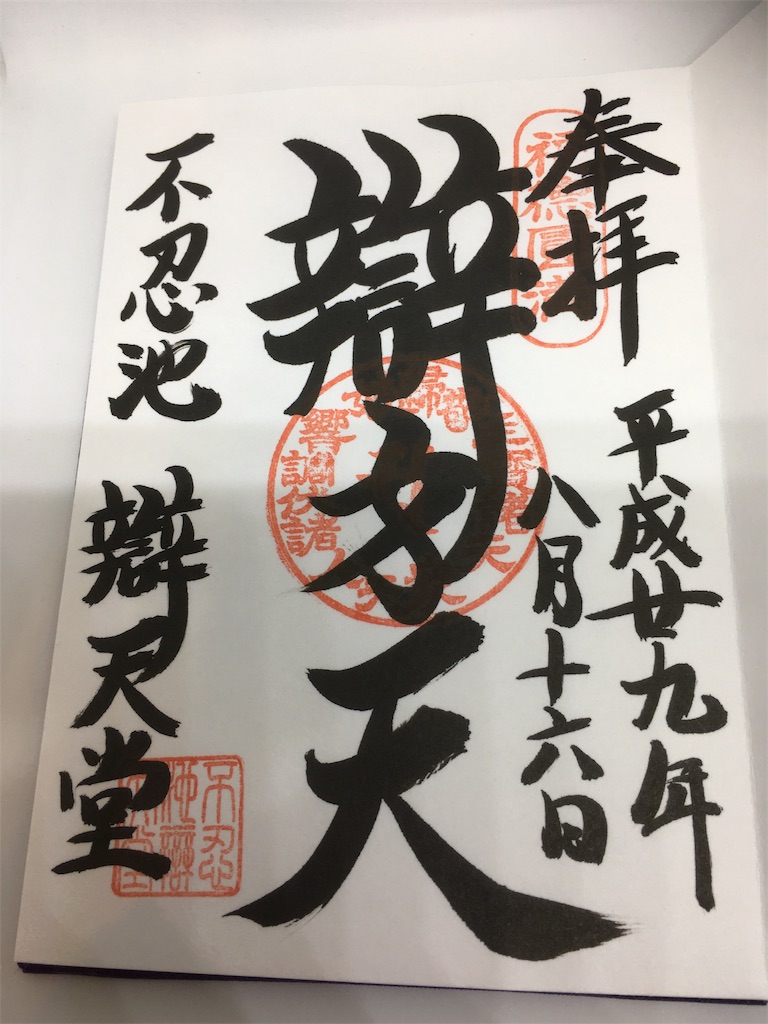 奉拝
平成廿九年
八月十六日
辯才天
不忍池
辯天堂
福德圓満
響調伏諸
不忍
池辯
天堂